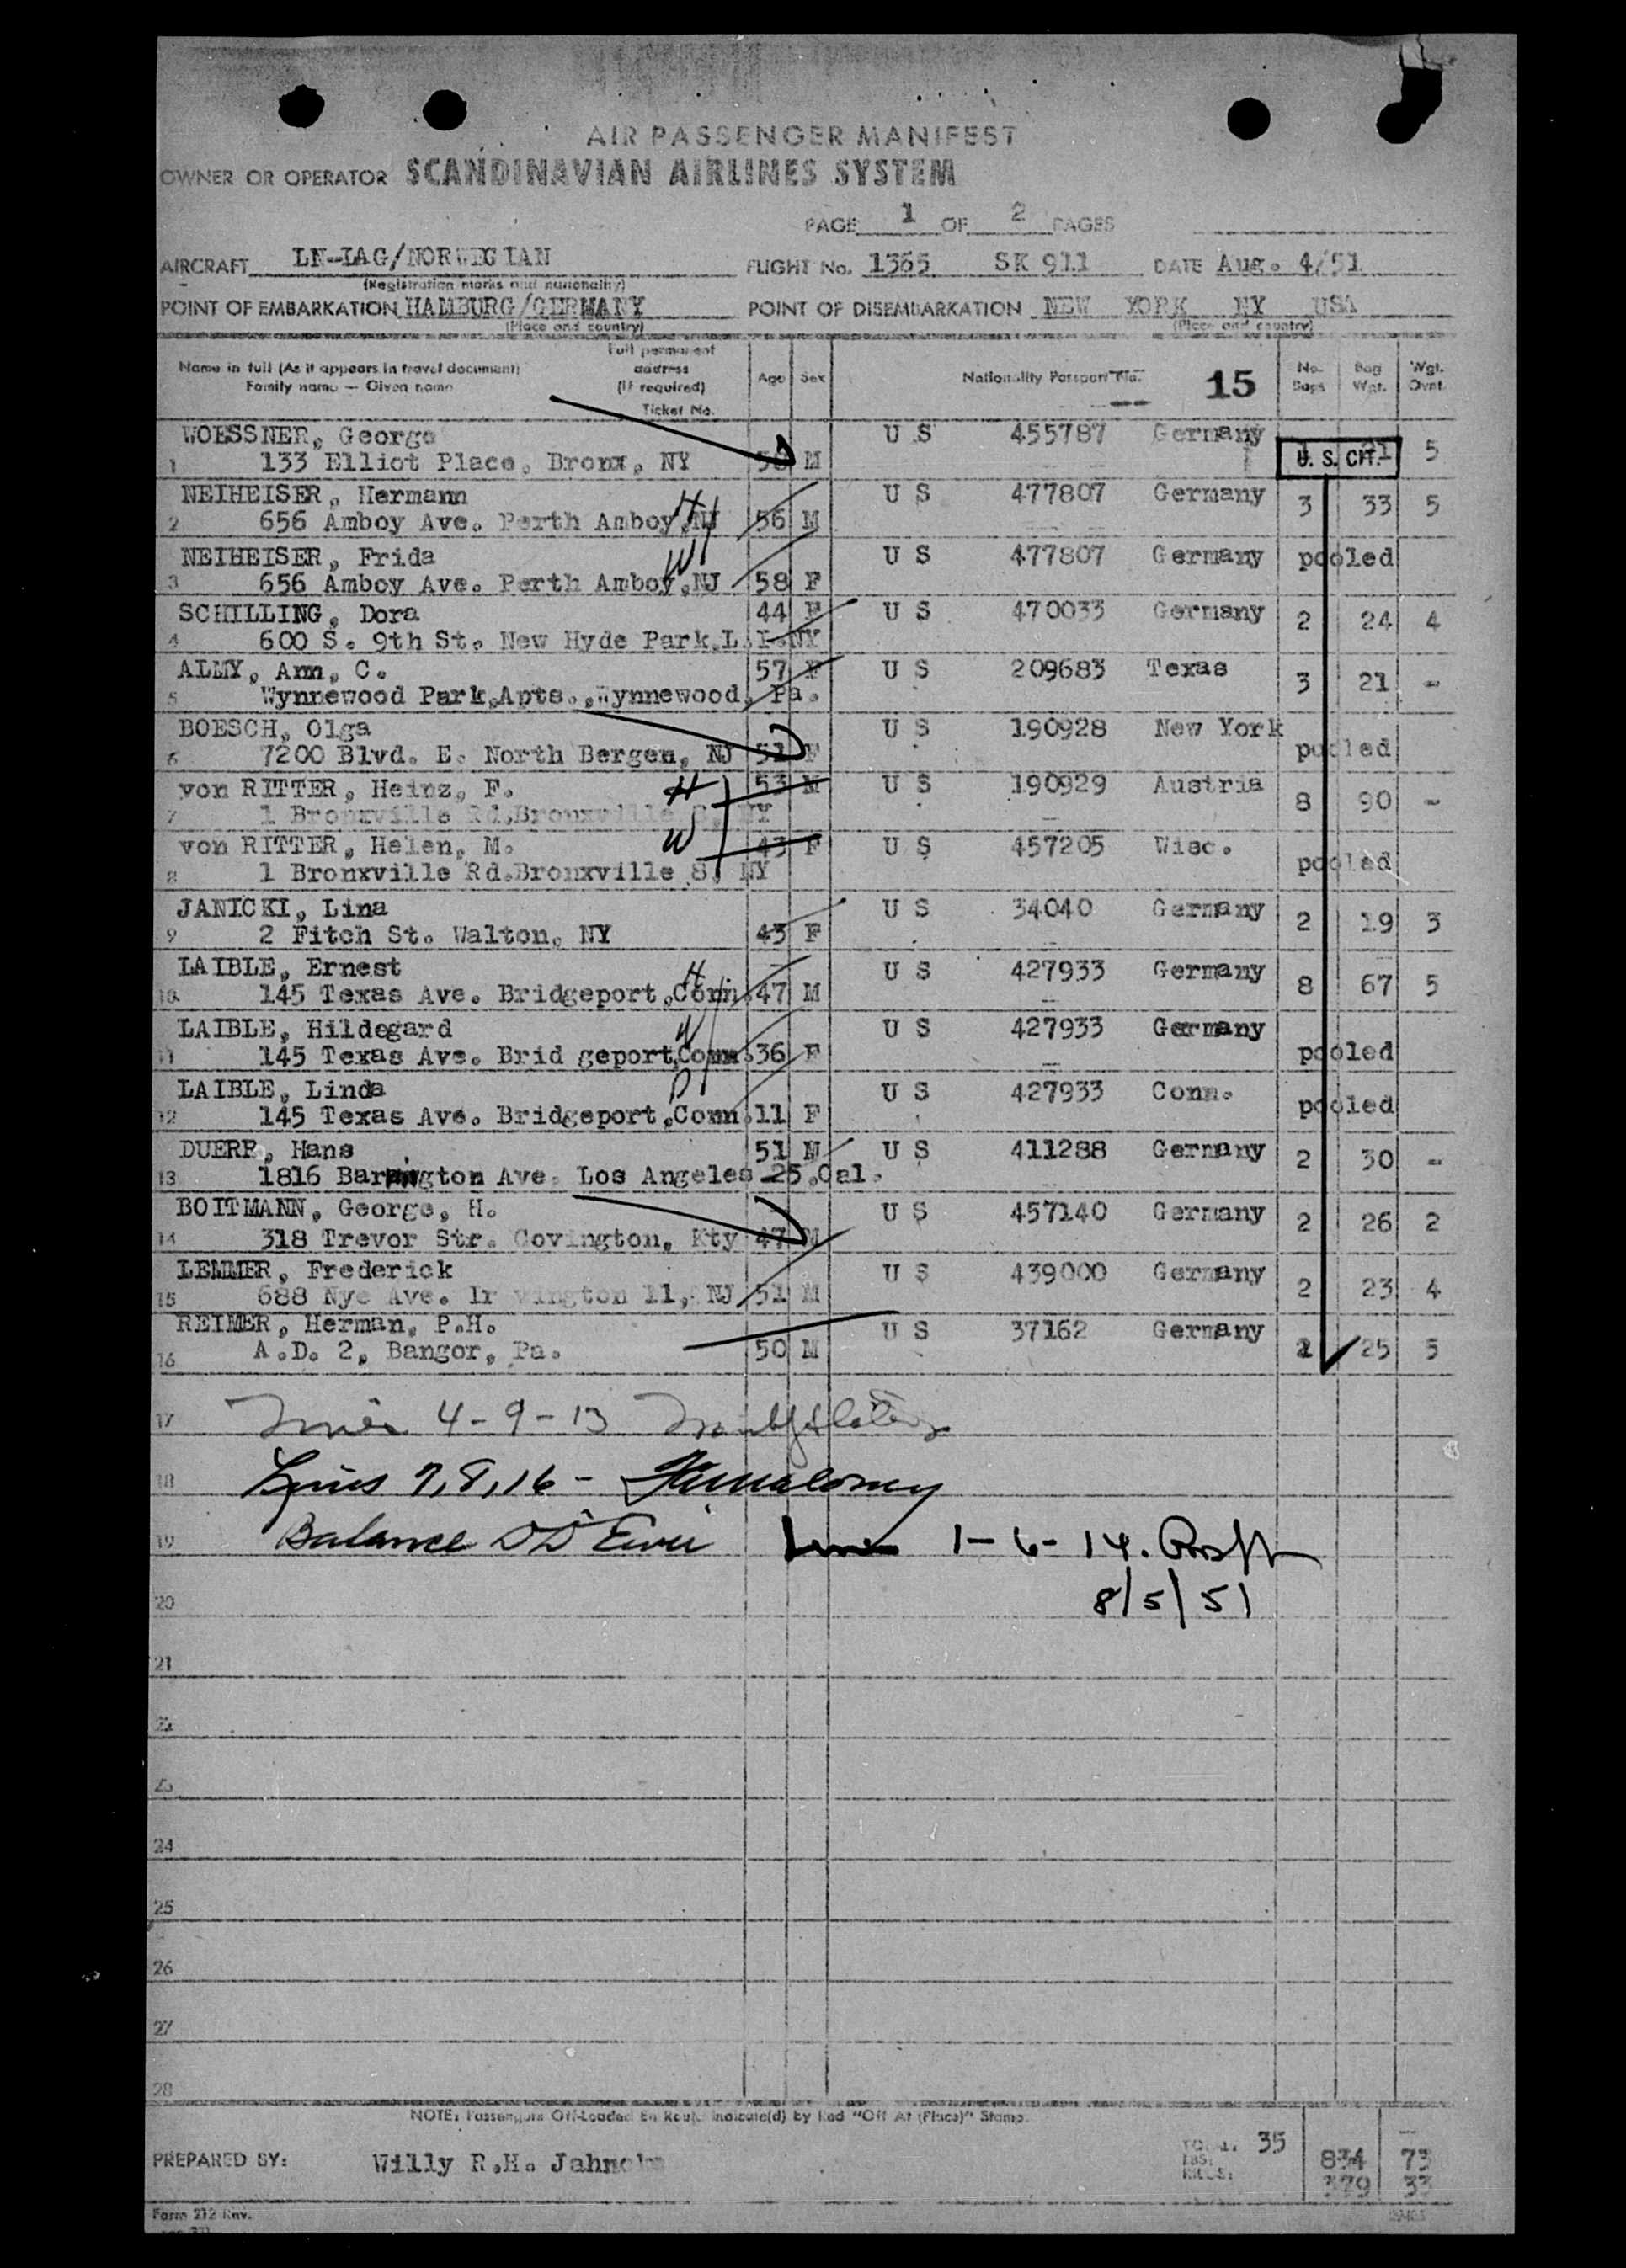 AIR PASSENGER MANIFEST
OWNER OR OPERATOR SCANDINAVIAN AIRLINES SYSTEM
PAGE 1 OF 2 PAGES
AIRCRAFT LN-LAG/NORWEGIAN FLIGHT No. 1365 SK 911 DATE Aug. 4/51
(Registration marks and nationality)
POINT OF EMBARKATION HAMBURG/GERMANY POINT OF DISEMBARKATION NEW YORK NY USA
(Place and country) (Place and country)
Name in full (As it appears in travel document) Family name — Given name Full permanent address (If required) Ticket No. Age Sex Nationality Passport No. 15 No. Bags Bag Wgt. Wgt. Ovnt.
WOESSNER, George U S 455787 Germany
1 133 Elliot Place, Bronx, NY M U. S. CIT. 21 5
NEIHEISER, Hermann H U S 477807 Germany 3 33 5
2 656 Amboy Ave. Perth Amboy, NJ 56 M
NEIHEISER, Frida W U S 477807 Germany pooled
3 656 Amboy Ave. Perth Amboy,NJ 58 F
SCHILLING, Dora 44 F U S 470033 Germany 2 24 4
4 600 S. 9th St. New Hyde Park,L.I. NY
ALMY, Ann, C. 57 F U S 209683 Texas 3 21 -
5 Wynnewood Park,Apts.,Wynnewood, Pa.
BOESCH, Olga U S 190928 New York pooled
6 7200 Blvd. E. North Bergen, NJ 51 F
von RITTER, Heinz, F. H 53 M U S 190929 Austria 8 90 -
7 1 Bronxville Rd.Bronxville S, NY
von RITTER, Helen, M. W 43 F U S 457205 Wisc. pooled
8 1 Bronxville Rd.Bronxville S, NY
JANICKI, Lina U S 34040 Germany 2 19 3
9 2 Fitch St. Walton, NY 43 F
LAIBLE, Ernest H U S 427933 Germany 8 67 5
10 145 Texas Ave. Bridgeport,Conn. 47 M
LAIBLE, Hildegard W U S 427933 Germany pooled
11 145 Texas Ave. Brid geport,Conn. 36 F
LAIBLE, Linda D U S 427933 Conn. pooled
12 145 Texas Ave. Bridgeport,Conn. 11 F
DUERR, Hans 51 M U S 411288 Germany 2 30 -
13 1816 Barrington Ave. Los Angeles 25,Cal.
BOITMANN, George, H. U S 457140 Germany 2 26 2
14 318 Trevor Str. Covington, Kty 47 M
LEMMER, Frederick U S 439000 Germany 2 23 4
15 688 Nye Ave. Ir vington 11, NJ 51 M
REIMER, Herman, P.H. U S 37162 Germany 25 5
16 A.D. 2, Bangor, Pa. 50 M
17 4-9-13
18 Lines 7,8,16 -
19 Balance 1-6-14.
20 8/5/51
21
22
23
24
25
26
27
28
NOTE: Passengers Off-Loaded En Route Indicate(d) by Red "Off At (Place)" Stamp.
PREPARED BY: Willy R.H. TOTAL: 35
LBS: 834 73
KILOS: 379 33
Form 212 Rev.